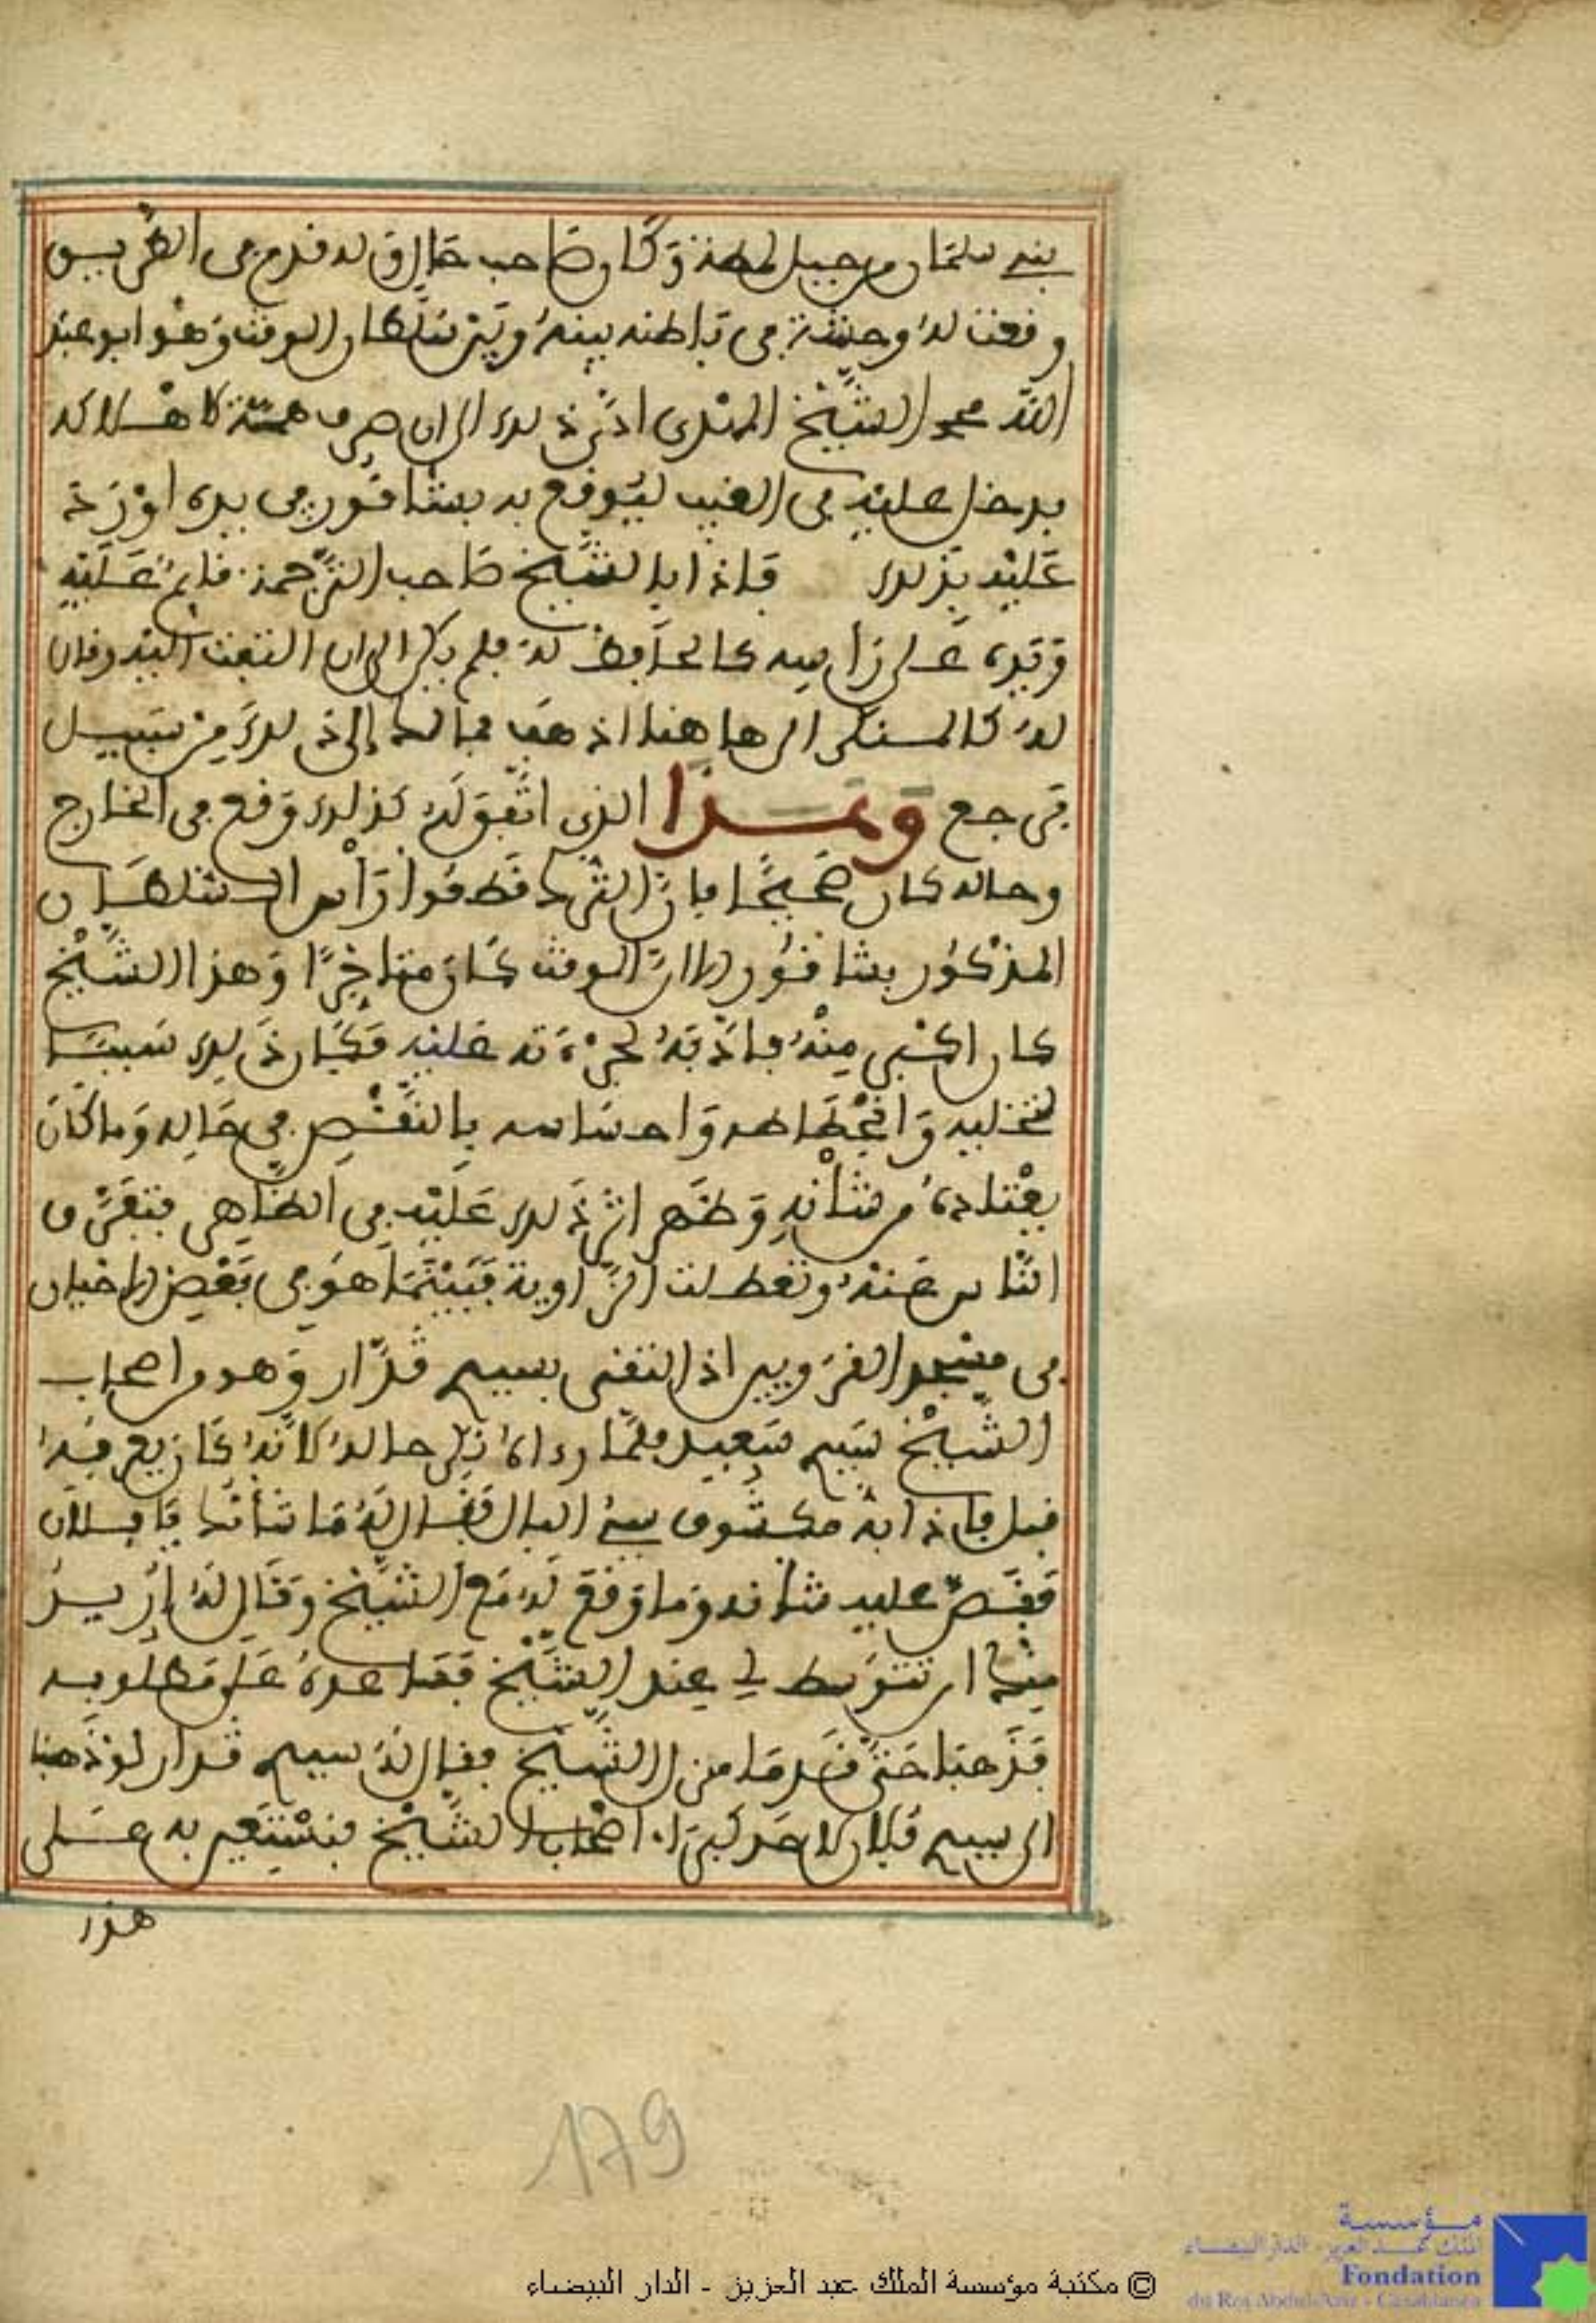 بني سلمان من جبيل لمطة وكان صاحب حال وله قدم في الطريق
وقعت له وحشة في باطنه بينه وبين سلطان الوقت وهو أبو عبد
الله محمد الشيخ المهدي أدى ذلك إلى أن صرف همته لإهلاكه
فدخل عليه في الغيب ليوقع به بشاقور في يده أو رمة
عليه بذلك فإذا بالشيخ صاحب الترجمة قائم عليه
ويده على رأسه كالحافظ له فلم يكن إلا أن التفت إليه وقال
له كالمستنكر إلى هاهنا اذهب فما لك إلى ذلك من سبيل
فرجع وهذا الذي اتفق له كذلك وقع في الخارج
وحاله كان صحيحا فإن الترك قطعوا رأس السلطان
المذكور بشاقور إلا أن الوقت كان متأخرا وهذا الشيخ
كان أكبر منه فأدبه لجرءته عليه فكان ذلك سببا
لتخليه وانحطاطه وإحساسه بالنقص في حاله وما كان
يعتاده من شأنه وظهر أثر ذلك عليه في الظاهر فتفرق
الناس عنه وتعطلت الزاوية فبينما هو في بعض الأحيان
في مسجد القرويين إذ التقى بسيدي قدار وهو من أصحاب
الشيخ سيدي سعيد فلما رءاه نكر حاله لأنه كان يعرفه
قبل فإذا به مكسوف سيئ البال فقال له ما شأنك يا فلان
فقص عليه شأنه وما وقع له مع الشيخ وقال له أريد
منك أن تتوسط لي عند الشيخ فساعده على مطلوبه
فذهبا حتى قدما منزل الشيخ فقال له سيدي قدار لو ذهبنا
إلى سيدي فلان لأحد كبراء أصحاب الشيخ فنستعين به على
هذا
179
© مكتبة مؤسسة الملك عبد العزيز - الدار البيضاء
مؤسسة
الملك عبد العزيز - الدار البيضاء
Fondation
du Roi Abdul-Aziz - Casablanca